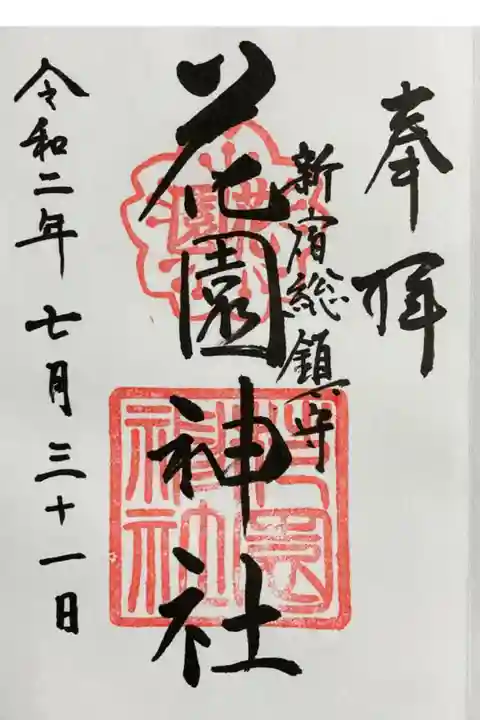 奉拝
新宿総鎮守
花園神社
令和二年七月三十一日
花園神社